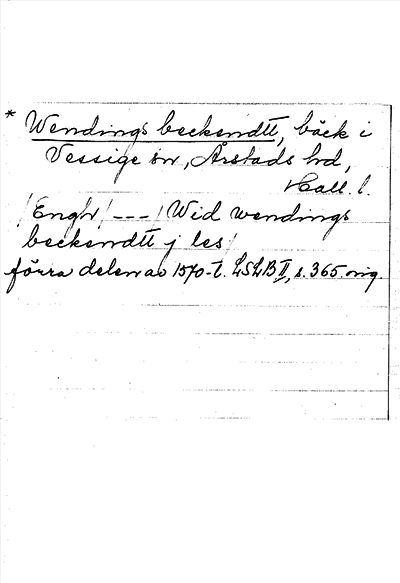 * Wendings beckendtt, bäck i
Vessige sn, Årstads hd,
Hall. l.
/Enghr/ --- /Wid wendings
beckendtt j les/
förra delen av 1570-t. LSLB II, s. 365. orig.